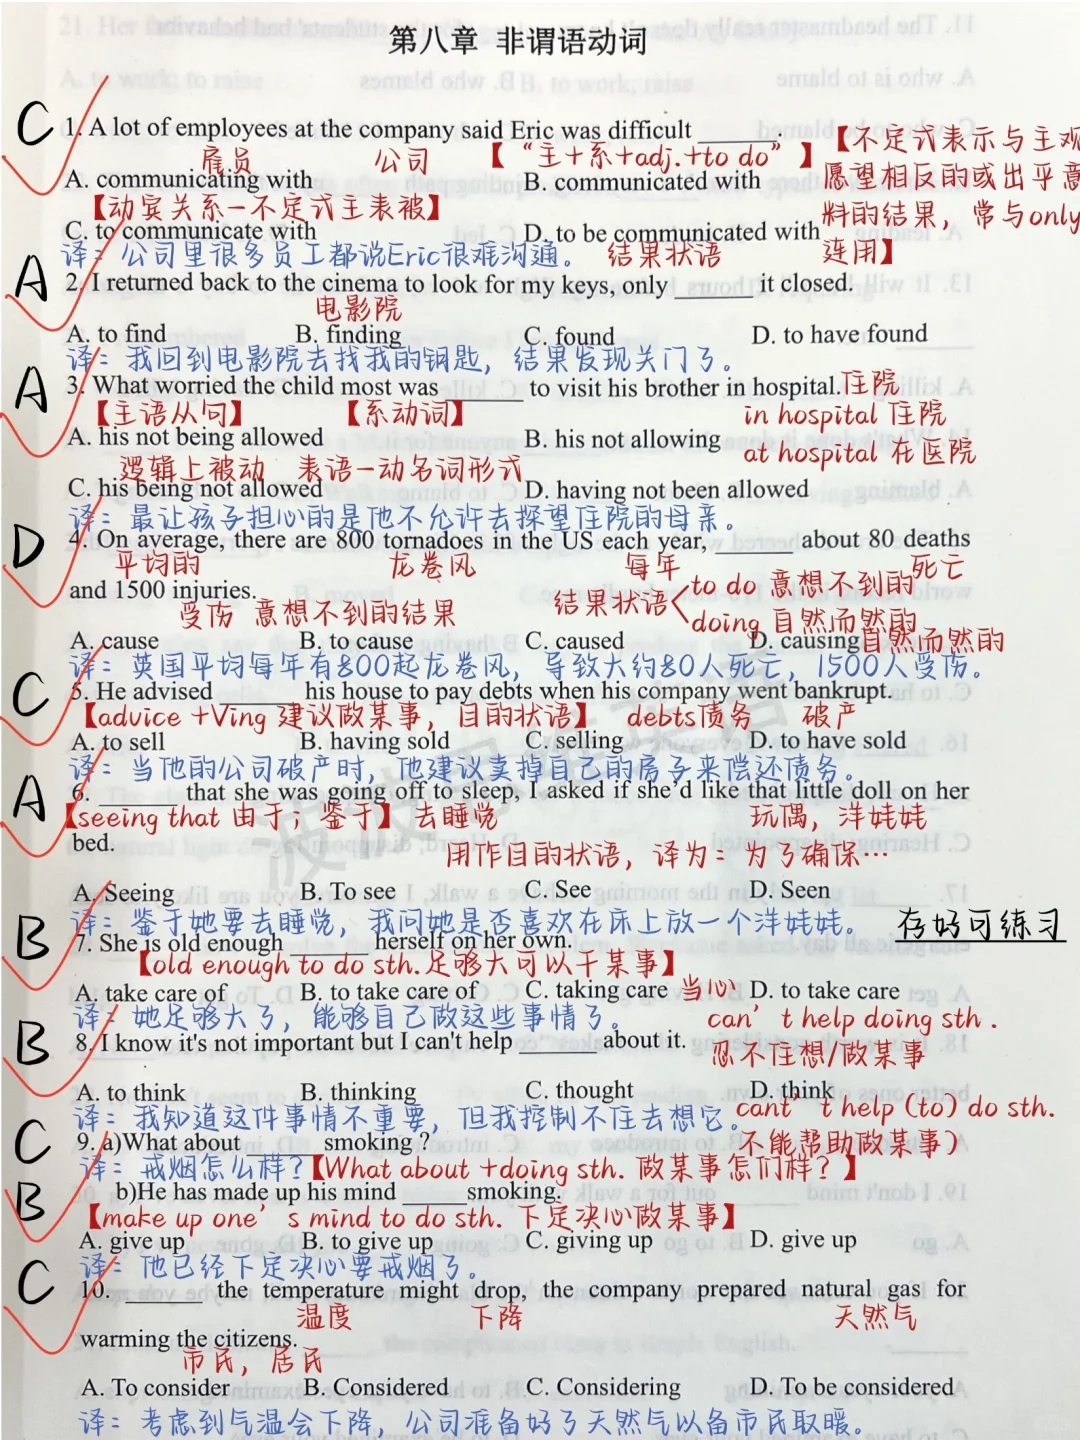 第八章 非谓语动词
C 1. A lot of employees at the company said Eric was difficult ______.
雇员 公司 【“主+系+adj.+to do”】【不定式表示与主观
A. communicating with B. communicated with 愿望相反的或出乎意
【动宾关系-不定式主表被】 料的结果，常与only
C. to communicate with D. to be communicated with 连用】
译：公司里很多员工都说Eric很难沟通。 结果状语
A 2. I returned back to the cinema to look for my keys, only ______ it closed.
电影院
A. to find B. finding C. found D. to have found
译：我回到电影院去找我的钥匙，结果发现关门了。
A 3. What worried the child most was ______ to visit his brother in hospital. 住院
【主语从句】 【系动词】 in hospital 住院
A. his not being allowed B. his not allowing at hospital 在医院
逻辑上被动 表语-动名词形式
C. his being not allowed D. having not been allowed
译：最让孩子担心的是他不允许去探望住院的母亲。
D 4. On average, there are 800 tornadoes in the US each year, ______ about 80 deaths
平均的 龙卷风 每年 死亡
and 1500 injuries. to do 意想不到的
受伤 意想不到的结果 结果状语< doing 自然而然的
A. cause B. to cause C. caused D. causing 自然而然的
译：英国平均每年有800起龙卷风，导致大约80人死亡，1500人受伤。
C 5. He advised ______ his house to pay debts when his company went bankrupt.
【advice +Ving 建议做某事，目的状语】 debts债务 破产
A. to sell B. having sold C. selling D. to have sold
译：当他的公司破产时，他建议卖掉自己的房子来偿还债务。
A 6. ______ that she was going off to sleep, I asked if she'd like that little doll on her
【seeing that 由于；鉴于】 去睡觉 玩偶，洋娃娃
bed. 用作目的状语，译为：为了确保…
A. Seeing B. To see C. See D. Seen
译：鉴于她要去睡觉，我问她是否喜欢在床上放一个洋娃娃。 存好可练习
B 7. She is old enough ______ herself on her own.
【old enough to do sth.足够大可以干某事】
A. take care of B. to take care of C. taking care 当心 D. to take care
译：她足够大了，能够自己做这些事情了。 can't help doing sth.
B 8. I know it's not important but I can't help ______ about it. 忍不住想/做某事
A. to think B. thinking C. thought D. think
译：我知道这件事情不重要，但我控制不住去想它。 cant't help (to) do sth.
C 9. a)What about ______ smoking ? 不能帮助做某事)
译：戒烟怎么样？【What about +doing sth. 做某事怎们样？】
B b)He has made up his mind ______ smoking.
【make up one's mind to do sth. 下定决心做某事】
A. give up B. to give up C. giving up D. give up
译：他已经下定决心要戒烟了。
C 10. ______ the temperature might drop, the company prepared natural gas for
温度 下降 天然气
warming the citizens.
市民，居民
A. To consider B. Considered C. Considering D. To be considered
译：考虑到气温会下降，公司准备好了天然气以备市民取暖。